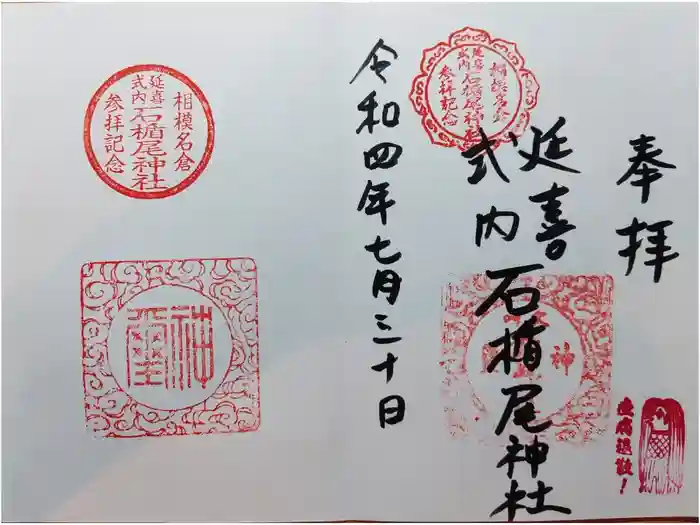 奉拝
延喜
式内
石楯尾神社
令和四年七月三十日
相模名倉
延喜
式内
石楯尾神社
参拝記念
神
疫病退散!
相模名倉
延喜
式内
石楯尾神社
参拝記念
神璽